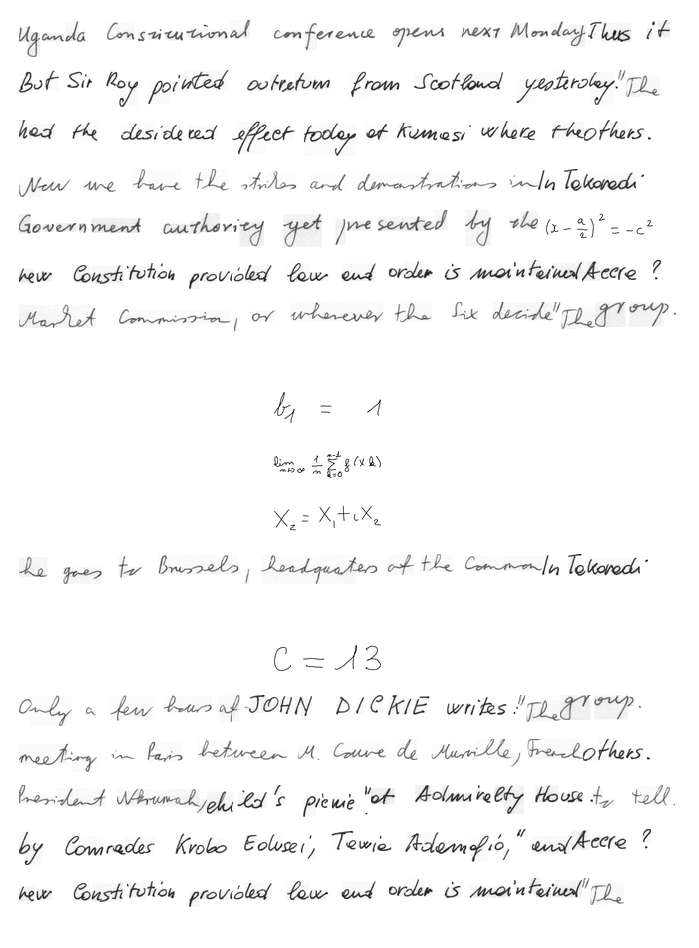 Uganda Constitutional conference opens next Monday. Thus it
But Sir Roy pointed outreturn from Scotland yesterday." The
had the desidered effect today at Kumasi where theothers.
Now we have the strikes and demostrations in In Takoradi
Government authority yet presented by the (x - a/2)² = -c²
new Constitution provided law and order is maintained Accra ?
Market Commission, or wherever the Six decide "The group.
b₁ = 1
lim_{n→∞} 1/n ∑_{k=0}^{n-1} f(xk)
X₂ = X₁ + iX₂
he goes to Brussels, headquaters of the Common In Takoradi
C = 13
Only a few hours af JOHN DICKIE writes: "The group.
meeting in Paris between M. Couve de Murville, French others.
President Nkrumah, child's picnic "at Admiralty House. to tell.
by Comrades Krobo Edusei, Tawia Adamafió," and Accra ?
new Constitution provided law and order is maintained "The